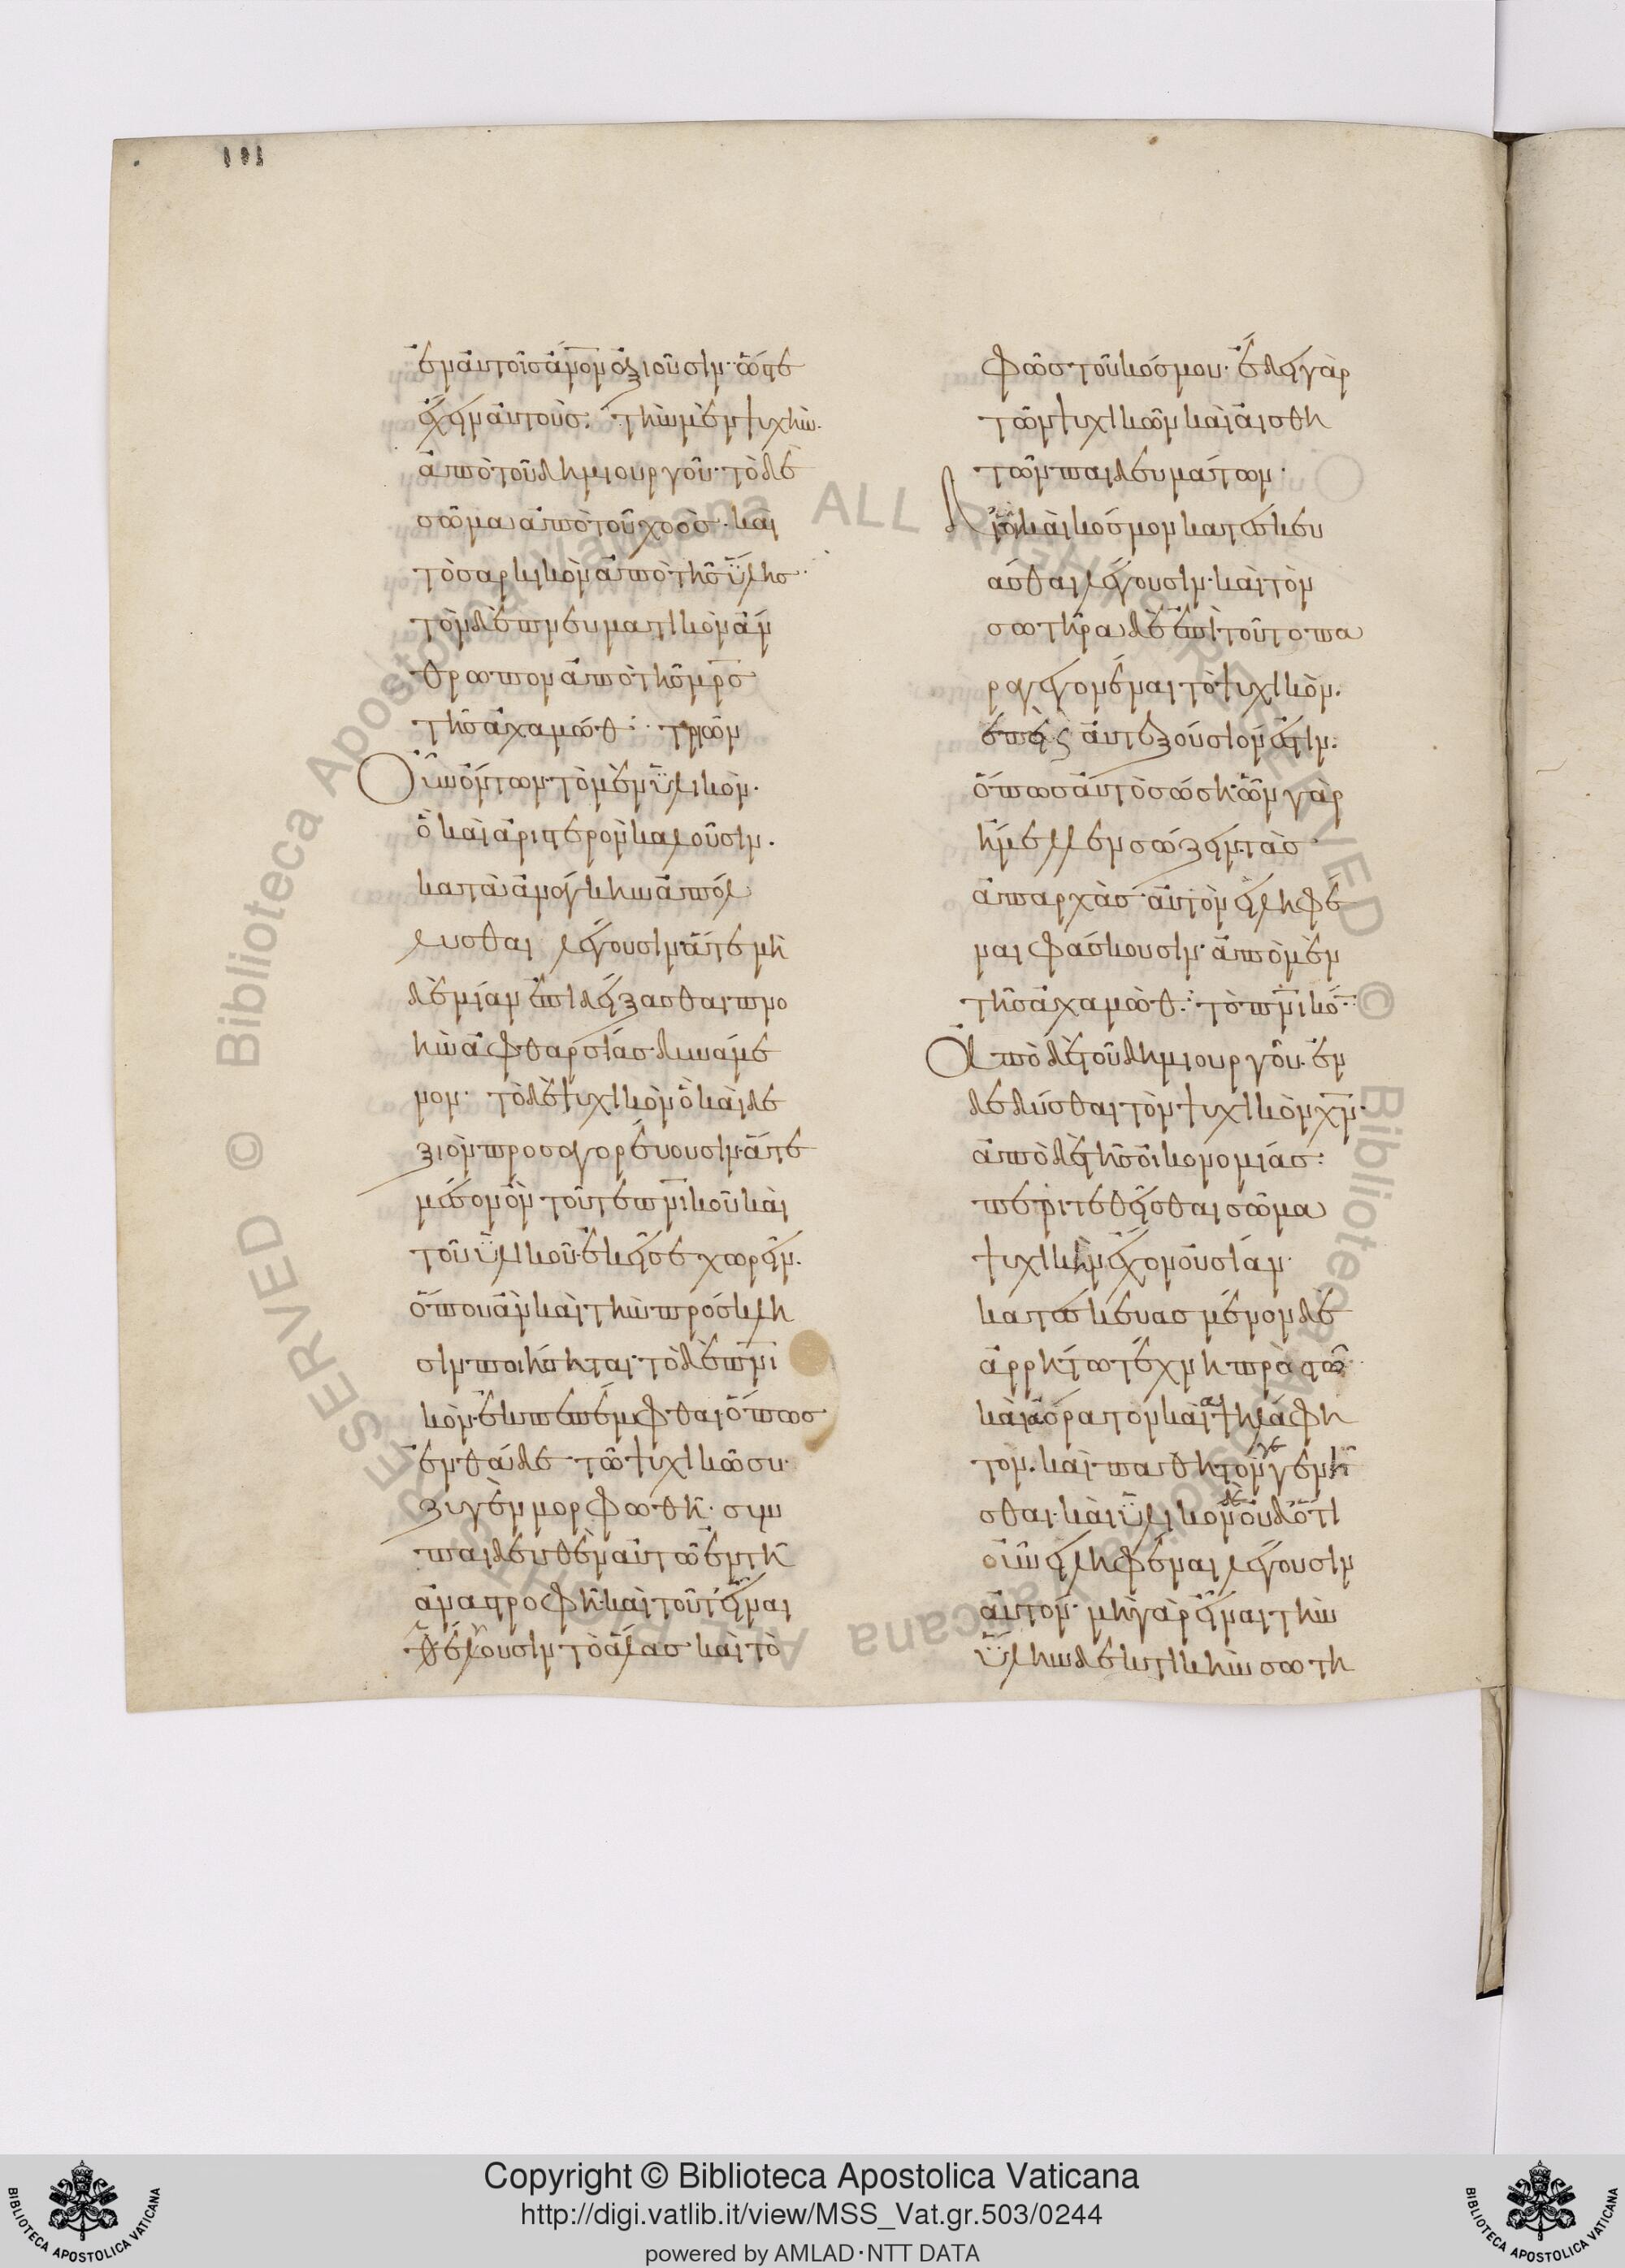 ἐν αὐτοῖς ἄν̅ον ἀξιοῦσιν· ὥστε
ἔχειν αὐτοὺς· τὴν μὲν ψυχὴν
ἀπὸ τοῦ δημιουργοῦ· τὸ δὲ
σῶμα ἀπὸ τοῦ χοὸς· καὶ
τὸ σαρκικὸν ἀπὸ τῆς ὕλης·
τὸν δὲ πνευματικὸν ἄν
θρωπον ἀπὸ τῆς μρ̅σ
τῆς ἀχαμώθ· τριῶν
Οὖν ὄντων· τὸ μὲν ὑλικὸν·
ὃ καὶ ἀριστερὸν καλοῦσιν·
κατὰ ἀνάγκην ἀπόλ
λυσθαι λέγουσιν· ἅτε μη
δεμίαν ἐπιδέξασθαι πνο
ὴν ἀφθαρσίας δυνάμε
νον· τὸ δὲ ψυχικὸν ὃ καὶ δε
ξιὸν προσαγορεύουσιν· ἅτε
μέσον ὂν τοῦ τε πν̅ικοῦ καὶ
τοῦ ὑλικοῦ· ἐκεῖσε χωρεῖν·
ὅπου ἂν καὶ τὴν πρόσκλη
σιν ποιήσηται· τὸ δὲ πν̅ι
κὸν· ἐκπεπέμφθαι ὅπως
ἐνθάδε τῶ ψυχικῶ συ
ζυγὲν μορφωθῆ· συμ
παιδευθὲν αὐτῶ ἐν τῆ
ἀναστροφῆ· καὶ τοῦτ' εἶναι
θέλουσιν τὸ ἅλας· καὶ τὸ
φῶς τοῦ κόσμου· ἔδει γὰρ
τῶν ψυχικῶν καὶ αἰσθη
τῶν παιδευμάτων·
Διὸ καὶ κόσμον κατεσκευ
άσθαι λέγουσιν· καὶ τὸν
σωτῆρα δὲ ἐπὶ τοῦτο πα
ραγεγονέναι τὸ ψυχικὸν·
ἐπεὶ ϛ αὐτεξούσιόν ἐστιν·
ὅπως αὐτὸ σώση· ὧν γὰρ
ἤμελλεν σώζειν· τὰς
ἀπαρχὰς αὐτὸν εἰληφέ
ναι φάσκουσιν· ἀπὸ μὲν
τῆς ἀχαμὼθ· τὸ πν̅ικό·
Ἀπὸ δὲ τοῦ δημιουργοῦ· ἐν
δεδύσθαι τὸν ψυχικὸν χν̅·
ἀπὸ δὲ τῆς οἰκονομίας·
περιτεθεῖσθαι σῶμα
ψυχικὴν ἔχον οὐσίαν·
κατεσκευασμένον δὲ
ἀρρήτω τέχνη πρὸς τῶ
καὶ ἀόρατον καὶ ἀψηλάφη
τον· καὶ παθητὸν γεγενῆ
σθαι· καὶ ὑλικὸν δὲ οὐδ' ὁτι
οῦν εἰληφέναι λέγουσιν
αὐτόν· μὴ γὰρ εἶναι τὴν
ὕλην δεκτικὴν σωτη
Copyright © Biblioteca Apostolica Vaticana
http://digi.vatlib.it/view/MSS_Vat.gr.503/0244
powered by AMLAD·NTT DATA